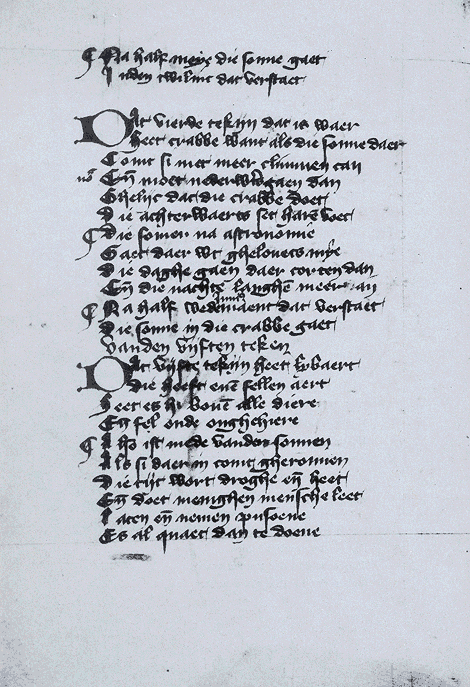 Na half meye die sonne gaet
Inden twilinc dat verstaet
Dat vierde tekijn dat is waer
heet crabbe want als die sonne daer
Comt si niet meer climmen can
Eñ moet nederwert gaen dan
Ghelijc dat die crabbe doet
Die achterwaerts set harē voet
Die somer na astronomie
Gaet daer wt ghelovets mye
Die daghe gaen daer corten dan
Eñ die nachte langhen meer an
Na half wedemaent dat verstaet
Die sonne in die crabbe gaet
Vanden vijften teken
Dat vijfte tekijn heet lybaert
die heeft enē fellen aert
heet es hi bouē alle diere
Eñ fel onde onghehiere
Also ist mede vander sonnen
Als si daer in comt gheronnen
Die tijt wort droghe eñ heet
Eñ doet menighen mensche leet
Laten eñ nemen pusoene
Es al quaet dan te doene